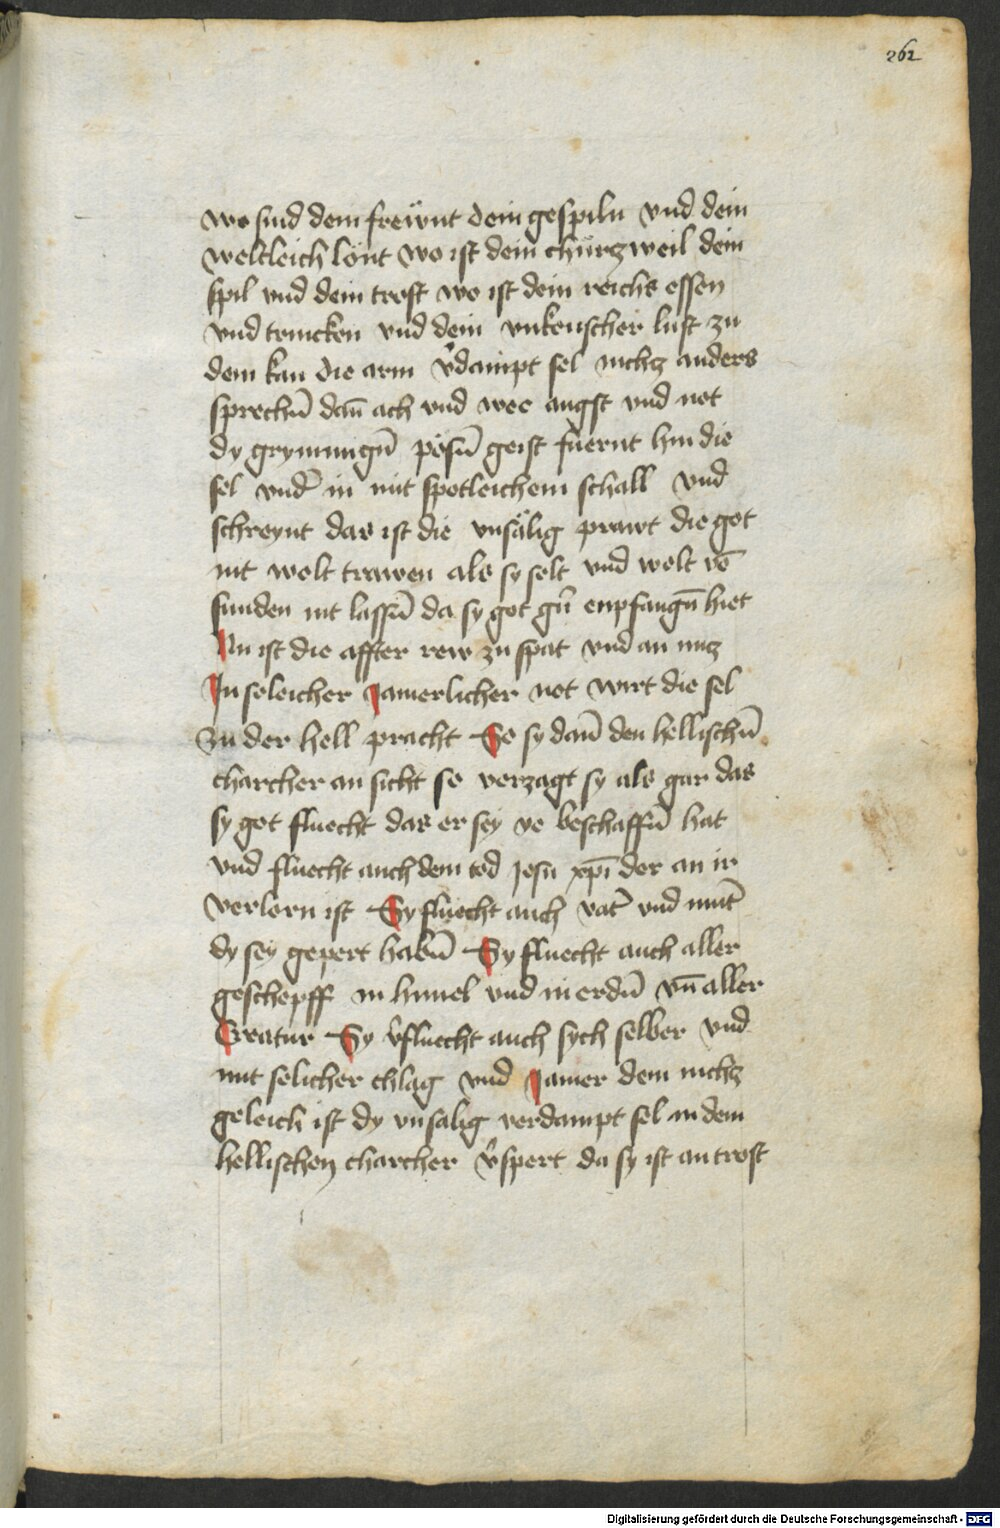 262
wo sind dein frewnt dein gespiln vnd dein
weltleich lönt wo ist dein churczweil dein
spil vnd dein trost wo ist dein reichs essen
vnd trincken vnd dein vnkeuscher lust zu
dem kan die arm v̄dampt sel nichcz anders
sprechn̄ dan̄ ach vnd wee angst vnd not
dy grymmign̄ pösn̄ geist fuernt hin die
sel vnd̄ in mit spotleichem schall vnd
schreynt das ist die vnsälig prawt die got
nit wolt trawen als sy solt vnd wolt vō
sunden nit lassn̄ da sy got gn̄ enpfangn̄ hiet
Nu ist die affter rew zu spat vnd an nucz
In soleicher Jamerlicher not wirt die sel
zu der hell pracht So sy dan̄ den hellischn̄
charcher an sicht so verzagt sy als gar das
sy got fluecht das er sey ye beschaffn̄ hat
vnd fluecht auch dem tod Jesu xp̄i der an ir
verlorn ist Sy fluecht auch vat̄ vnd mut̄
dy sey gepert habn̄ Sy fluecht auch aller
geschepff in himel vnd in erdn̄ vn̄ aller
Creatur Sy v̄fluecht auch sych selber vnd
mit solicher chlag vnd Jamer dem nichcz
geleich ist dy vnsalig verdampt sel in dem
hellischen charcher v̄spert da sy ist an trost
Digitalisierung gefördert durch die Deutsche Forschungsgemeinschaft - DFG